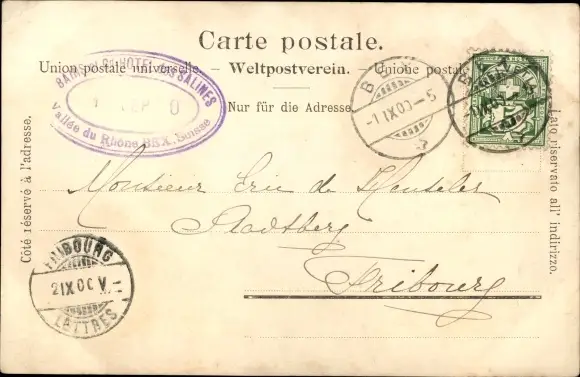 Carte postale.
Union postale universelle. – Weltpostverein. – Unione postale
Nur für die Adresse.
Côté réservé à l'adresse.
Lato riservato all' indirizzo.
BAINS HOTEL DES SALINES
Vallée du Rhône BEX, Suisse
1 SEP 0
-1 IX 00 - 5
Monsieur Eric de
Stadtberg
Fribourg
FRIBOURG
2 IX 00 V
LETTRES